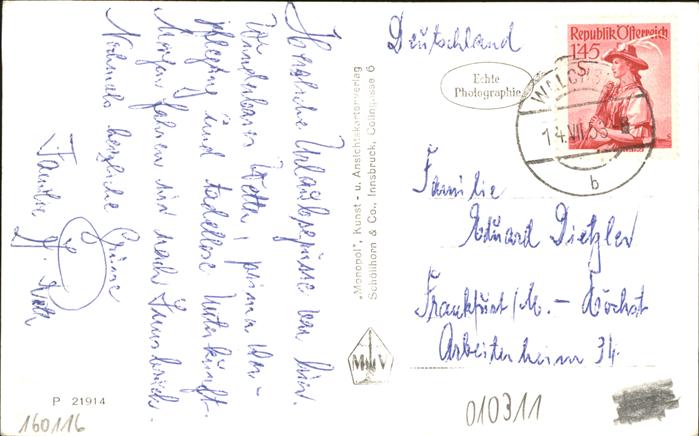 Herzliche Urlaubsgrüsse von hier.
Wunderbares Wetter, prima Ver-
pflegung und tadellose Unterkunft.
Morgen fahren wir nach Innsbruck.
Nochmals herzliche Grüsse
Familie
P 21914
160116
"Monopol", Kunst- u. Ansichtskartenverlag
Schöllhorn & Co., Innsbruck, Colingasse 6
Deutschland
Echte
Photographie
Republik Österreich
1.45 S
14.VII.53
b
Familie
Eduard Dietzler
Frankfurt/M. - Höchst
Arbeiterheim 34.
010311